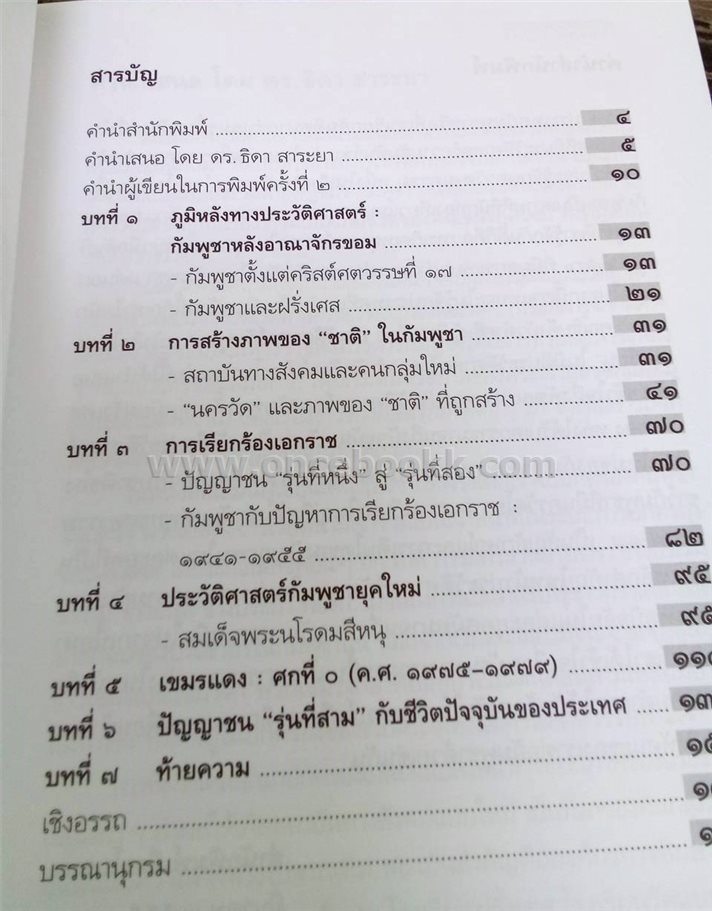 สารบัญ
คำนำสำนักพิมพ์ ๔
คำนำเสนอ โดย ดร.ธิดา สาระยา ๕
คำนำผู้เขียนในการพิมพ์ครั้งที่ ๒ ๑๐
บทที่ ๑ ภูมิหลังทางประวัติศาสตร์ :
กัมพูชาหลังอาณาจักรขอม ๑๓
- กัมพูชาตั้งแต่คริสต์ศตวรรษที่ ๑๗ ๑๓
- กัมพูชาและฝรั่งเศส ๒๑
บทที่ ๒ การสร้างภาพของ “ชาติ” ในกัมพูชา ๓๑
- สถาบันทางสังคมและคนกลุ่มใหม่ ๓๑
- “นครวัด” และภาพของ “ชาติ” ที่ถูกสร้าง ๔๑
บทที่ ๓ การเรียกร้องเอกราช ๗๐
- ปัญญาชน “รุ่นที่หนึ่ง” สู่ “รุ่นที่สอง” ๗๐
- กัมพูชากับปัญหาการเรียกร้องเอกราช :
๑๙๔๑-๑๙๕๕ ๘๒
บทที่ ๔ ประวัติศาสตร์กัมพูชายุคใหม่ ๙๕
- สมเด็จพระนโรดมสีหนุ ๙๕
บทที่ ๕ เขมรแดง : ศกที่ ๐ (ค.ศ. ๑๙๗๕-๑๙๗๙)
บทที่ ๖ ปัญญาชน “รุ่นที่สาม” กับชีวิตปัจจุบันของประเทศ
บทที่ ๗ ท้ายความ
เชิงอรรถ
บรรณานุกรม